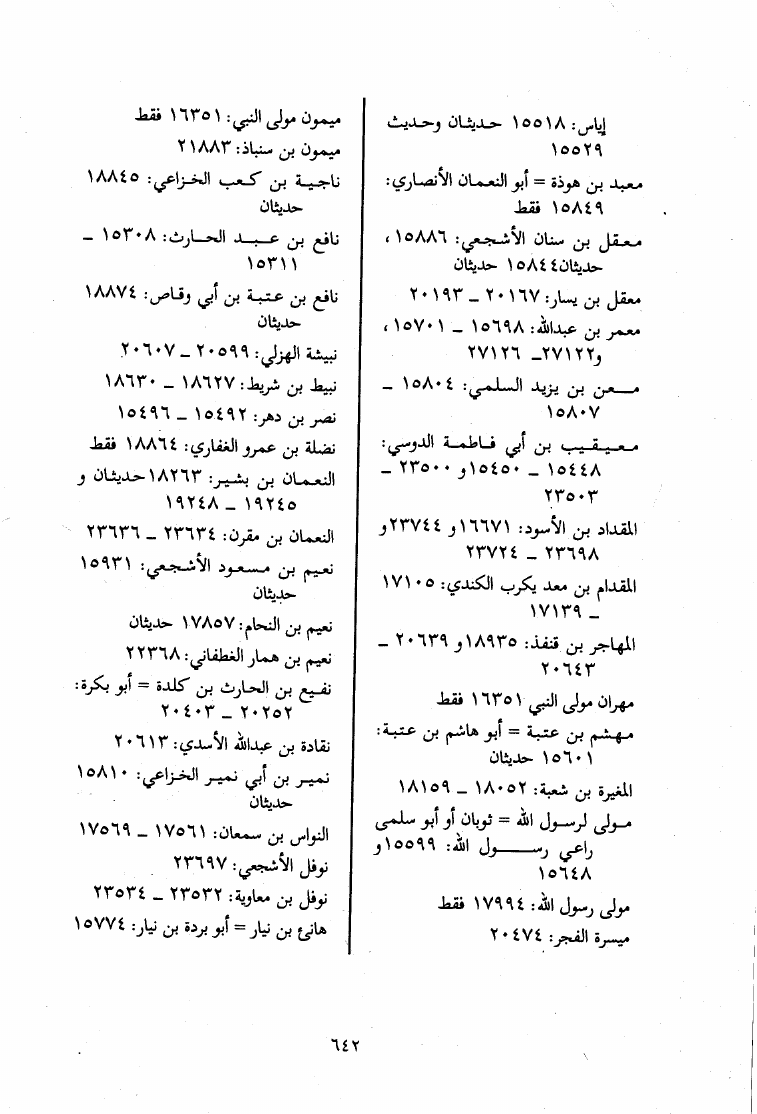 إياس: ١٥٥١٨ حديثان وحديث
١٥٥٢٩
معبد بن هوذة = أبو النعمان الأنصاري:
١٥٨٤٩ فقط
معقل بن سنان الأشجعي: ١٥٨٨٦ ،
حديثان١٥٨٤٤ حديثان
معقل بن يسار: ٢٠١٦٧ - ٢٠١٩٣
معمر بن عبدالله: ١٥٦٩٨ - ١٥٧٠١ ،
و٢٧١٢٢- ٢٧١٢٦
معن بن يزيد السلمي: ١٥٨٠٤ -
١٥٨٠٧
معيقيب بن أبي فاطمة الدوسي:
١٥٤٤٨ - ١٥٤٥٠و ٢٣٥٠٠ -
٢٣٥٠٣
المقداد بن الأسود: ١٦٦٧١و ٢٣٧٤٤و
٢٣٦٩٨ - ٢٣٧٢٤
المقدام بن معد يكرب الكندي: ١٧١٠٥
- ١٧١٣٩
المهاجر بن قنفذ: ١٨٩٣٥و ٢٠٦٣٩ -
٢٠٦٤٣
مهران مولى النبي ١٦٣٥١ فقط
مهشم بن عتبة = أبو هاشم بن عتبة:
١٥٦٠١ حديثان
المغيرة بن شعبة: ١٨٠٥٢ - ١٨١٥٩
مولى لرسول الله = ثوبان أو أبو سلمى
راعي رسول الله: ١٥٥٩٩و
١٥٦٤٨
مولى رسول الله: ١٧٩٩٤ فقط
ميسرة الفجر: ٢٠٤٧٤
ميمون مولى النبي: ١٦٣٥١ فقط
ميمون بن سنباذ: ٢١٨٨٣
ناجية بن كعب الخزاعي: ١٨٨٤٥
حديثان
نافع بن عبد الحارث: ١٥٣٠٨ -
١٥٣١١
نافع بن عتبة بن أبي وقاص: ١٨٨٧٤
حديثان
نبيشة الهزلي: ٢٠٥٩٩ - ٢٠٦٠٧
نبيط بن شريط: ١٨٦٢٧ - ١٨٦٣٠
نصر بن دهر: ١٥٤٩٢ - ١٥٤٩٦
نضلة بن عمرو الغفاري: ١٨٨٦٤ فقط
النعمان بن بشير: ١٨٢٦٣حديثان و
١٩٢٤٥ - ١٩٢٤٨
النعمان بن مقرن: ٢٣٦٣٤ - ٢٣٦٣٦
نعيم بن مسعود الأشجعي: ١٥٩٣١
حديثان
نعيم بن النحام: ١٧٨٥٧ حديثان
نعيم بن همار الغطفاني: ٢٢٣٦٨
نفيع بن الحارث بن كلدة = أبو بكرة:
٢٠٢٥٢ - ٢٠٤٠٣
نقادة بن عبدالله الأسدي: ٢٠٦١٣
نمير بن أبي نمير الخزاعي: ١٥٨١٠
حديثان
النواس بن سمعان: ١٧٥٦١ - ١٧٥٦٩
نوفل الأشجعي: ٢٣٦٩٧
نوفل بن معاوية: ٢٣٥٣٢ - ٢٣٥٣٤
هانئ بن نيار = أبو بردة بن نيار: ١٥٧٧٤
٦٤٢